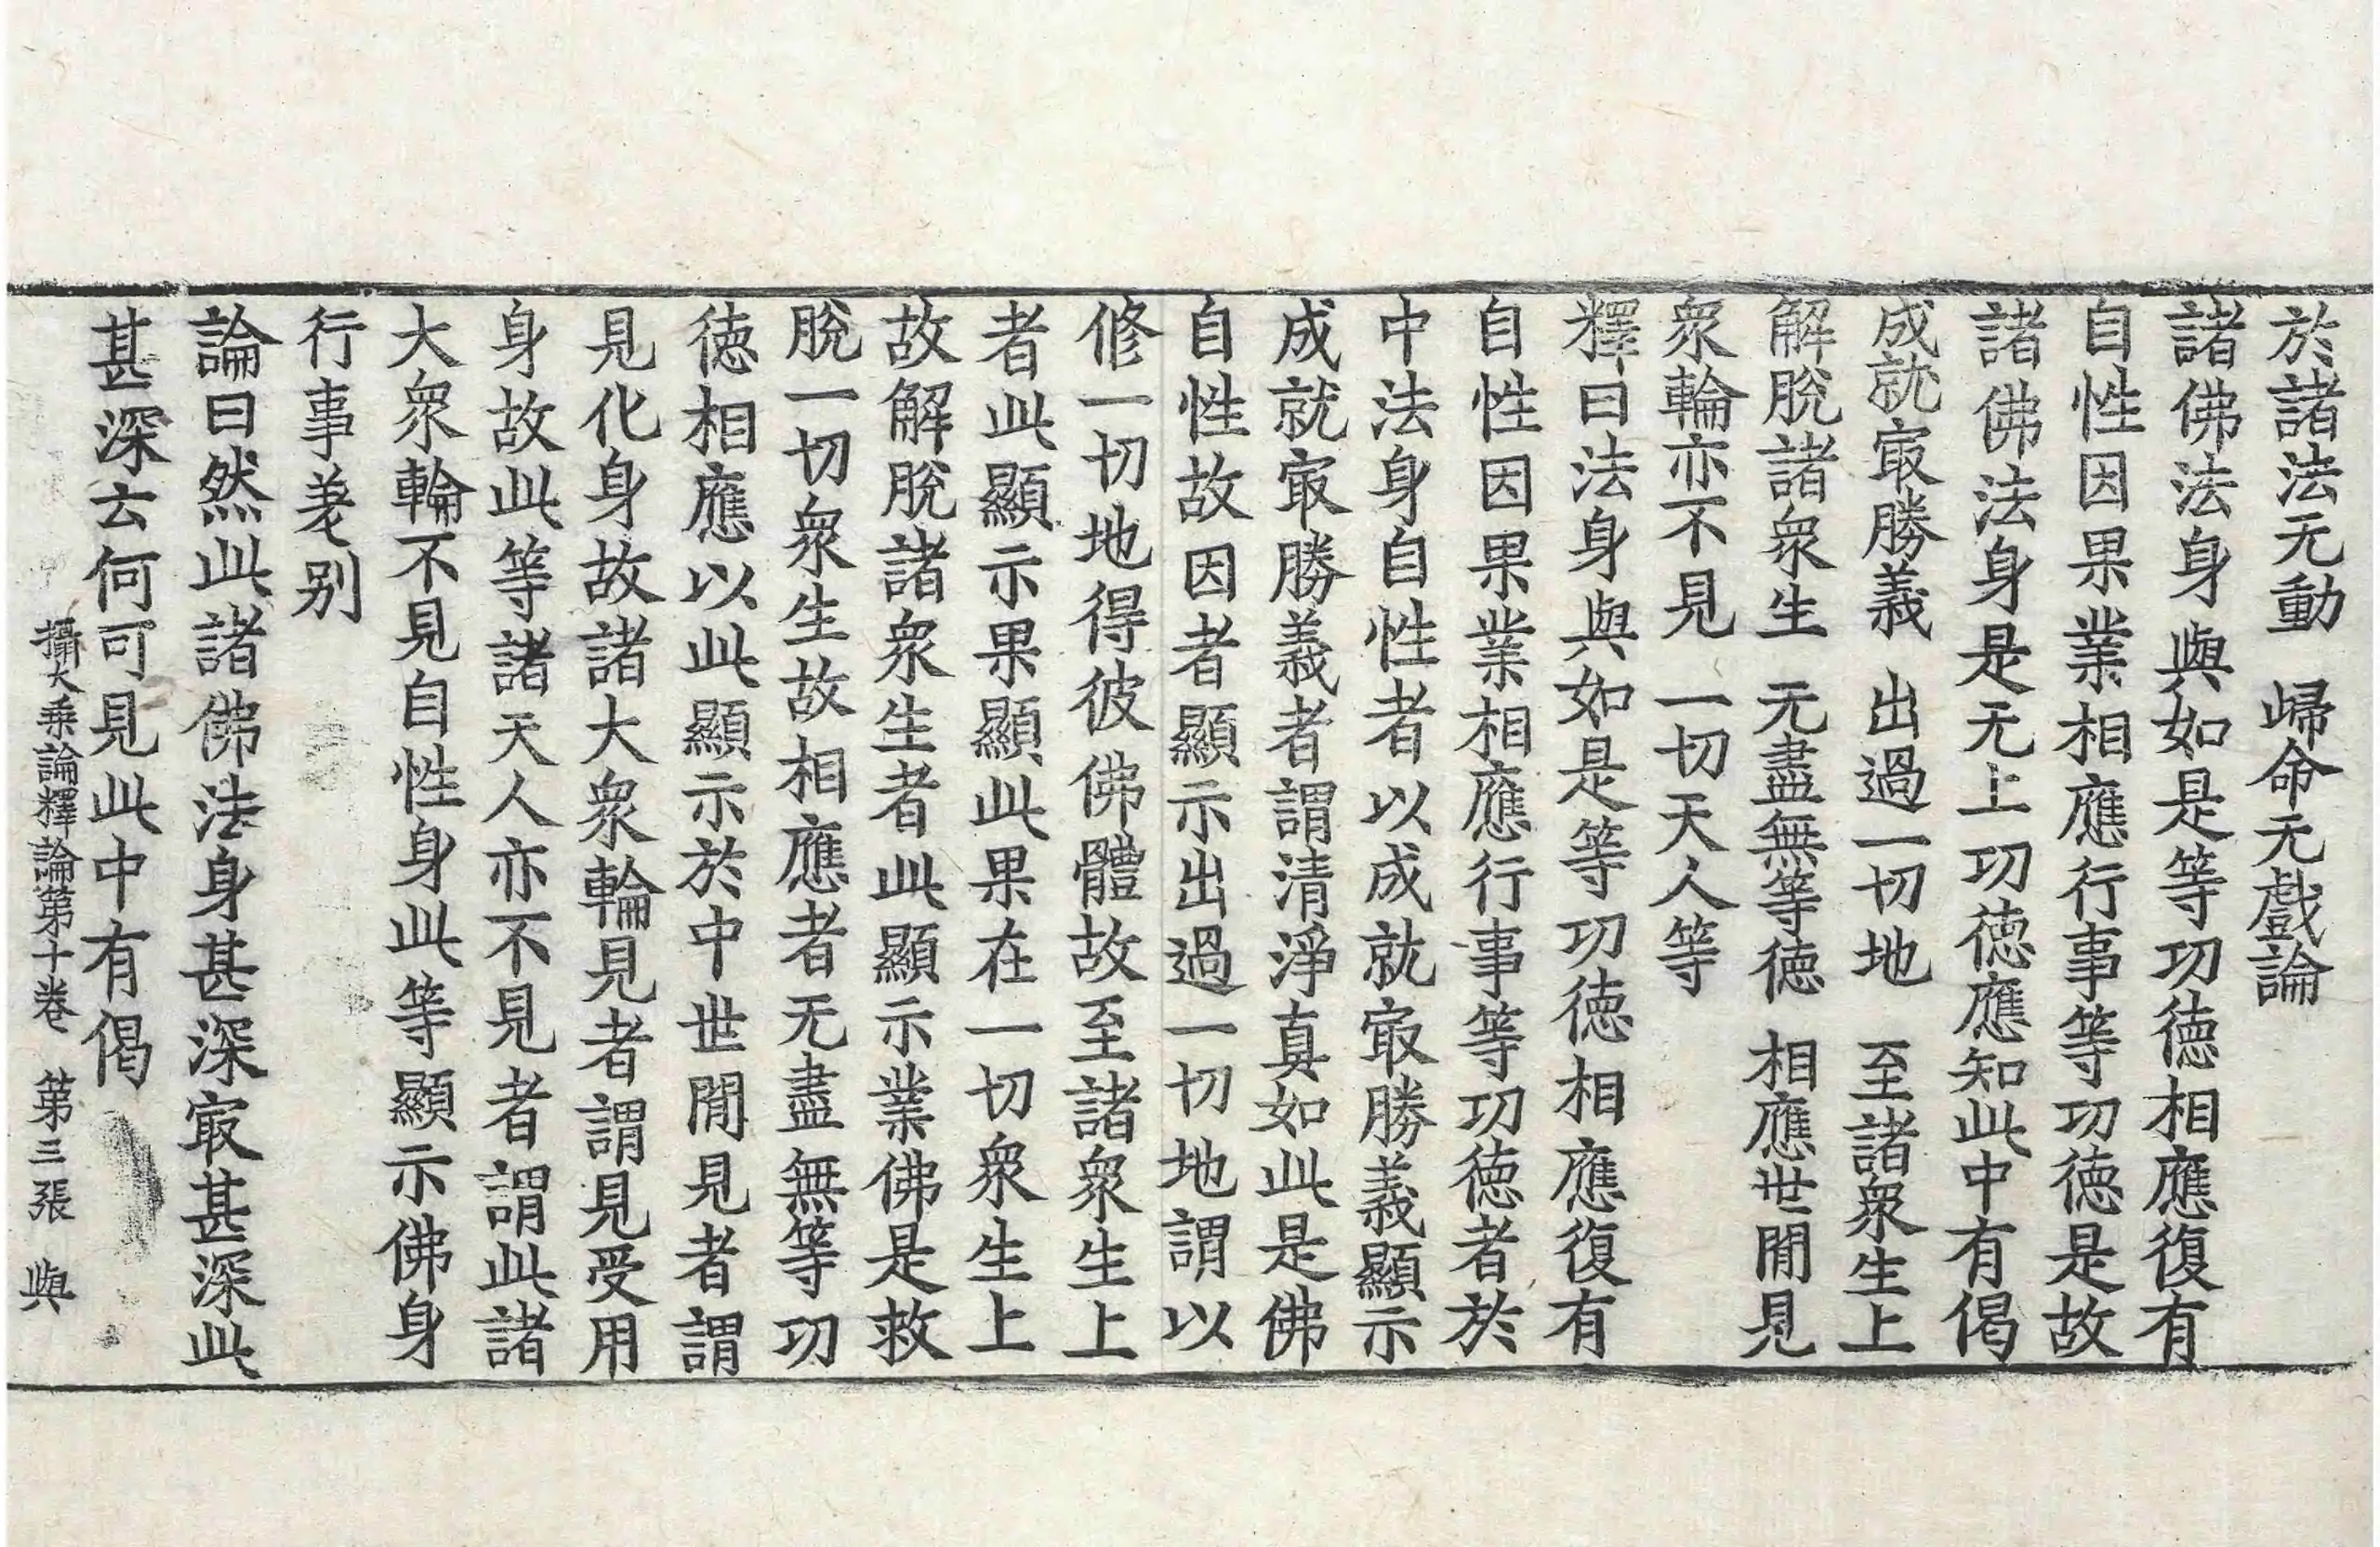 於諸法无動　歸命无戲論
諸佛法身與如是等功德相應復有
自性因果業相應行事等功德是故
諸佛法身是无上功德應知此中有偈
成就㝡勝義　出過一切地　至諸衆生上
解脫諸衆生　无盡無等德　相應世閒見
衆輪亦不見　一切天人等
釋曰法身與如是等功德相應復有
自性因果業相應行事等功德者於
中法身自性者以成就㝡勝義顯示
成就㝡勝義者謂清淨真如此是佛
自性故因者顯示出過一切地謂以
修一切地得彼佛體故至諸衆生上
者此顯示果顯此果在一切衆生上
故解脫諸衆生者此顯示業佛是救
脫一切衆生故相應者无盡無等功
德相應以此顯示於中世閒見者謂
見化身故諸大衆輪見者謂見受用
身故此等諸天人亦不見者謂此諸
大衆輪不見自性身此等顯示佛身
行事差别
論曰然此諸佛法身甚深㝡甚深此
甚深云何可見此中有偈
攝大乘論釋論第十卷　第三張　與